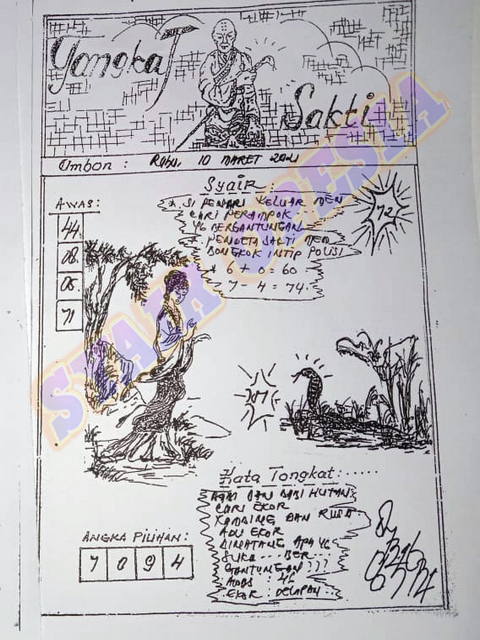 Tongkat Sakti
Ombon : RABU, 10 MARET 2021
Syair :
AWAS :
44
08
05
71
* SI PENARI KELUAR MEN
CARI PERAMPOK
YG BERGANTUNGAN
* PENDETA SAKTI MEM
BONGKOK INTIP POLISI
* 6 + 0 = 60
7 - 4 = 74
72
Kata Tongkat : .....
AYAM DAN BABI HUTAN
CARI EKOR
KAMBING DAN RUSA
ADU EKOR
BINATANG APA YG
SUKA ... BER...
GANTUNGAN ???
AWAS : 46
EKOR : DELAPAN
ANGKA PILIHAN :
7 0 9 4
SYAIR OPESIA